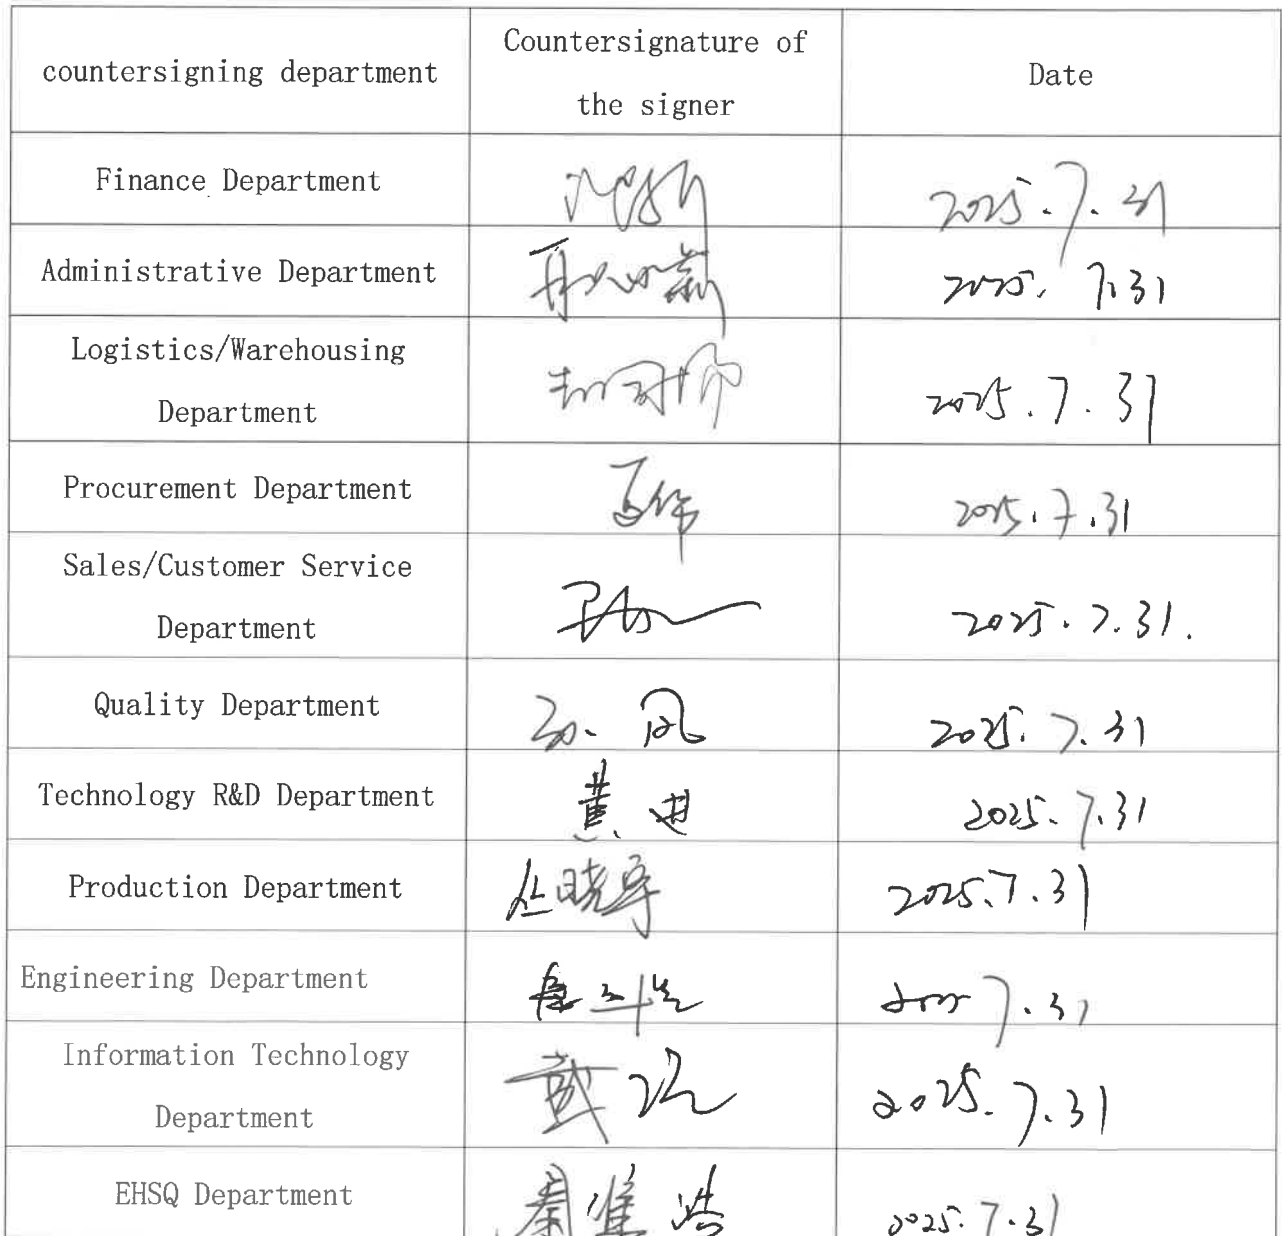 countersigning department
Countersignature of
the signer
Date
Finance Department
2025.7.31
Administrative Department
2025.7.31
Logistics/Warehousing
Department
2025.7.31
Procurement Department
2025.7.31
Sales/Customer Service
Department
2025.7.31.
Quality Department
2025.7.31
Technology R&D Department
黄进
2025.7.31
Production Department
丛晓宇
2025.7.31
Engineering Department
7.31
Information Technology
Department
戴
2025.7.31
EHSQ Department
秦淮浩
2025.7.31